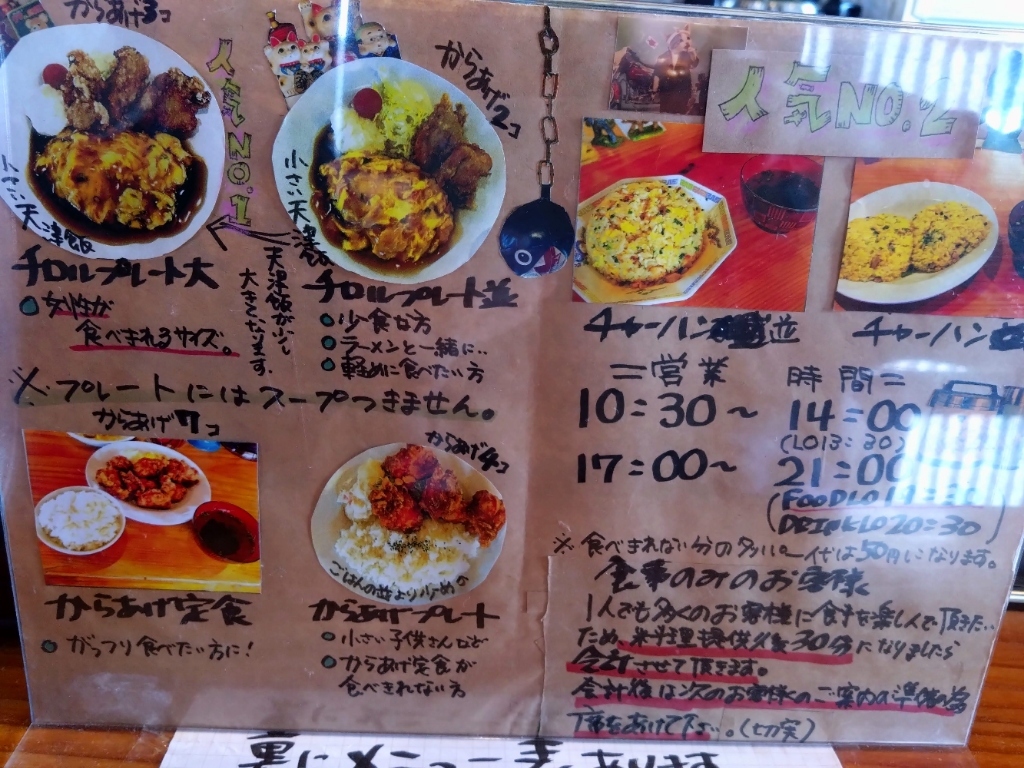 からあげ3コ
人気NO.1
小さい天津飯
チロルプレート大
女性が
食べきれるサイズ。
からあげ2コ
小さい天津飯
天津飯が少し
大きくなります。
チロルプレート並
少食な方
ラーメンと一緒に..
軽めに食べたい方
※プレートにはスープつきません。
からあげ7コ
からあげ定食
がっつり食べたい方に!
からあげ4コ
ごはんの並より少なめ
からあげプレート
小さい子供さんなど
からあげ定食が
食べきれない方
人気NO.2
チャーハン 並
チャーハン
=営業 時間=
10:30~ 14:00
(LO13:30)
17:00~ 21:00
(FOOD LO
DRINK LO 20:30)
※食べきれない分の代は50円になります。
食事のみのお客様
1人でも多くのお客様に食事を楽しんで頂きた..
ため、料理提供後30分になりましたら
会計させて頂きます。
会計後は次のお客様のご案内の準備の為
席をあけて下さい。(切実)
裏にメニュー表あります